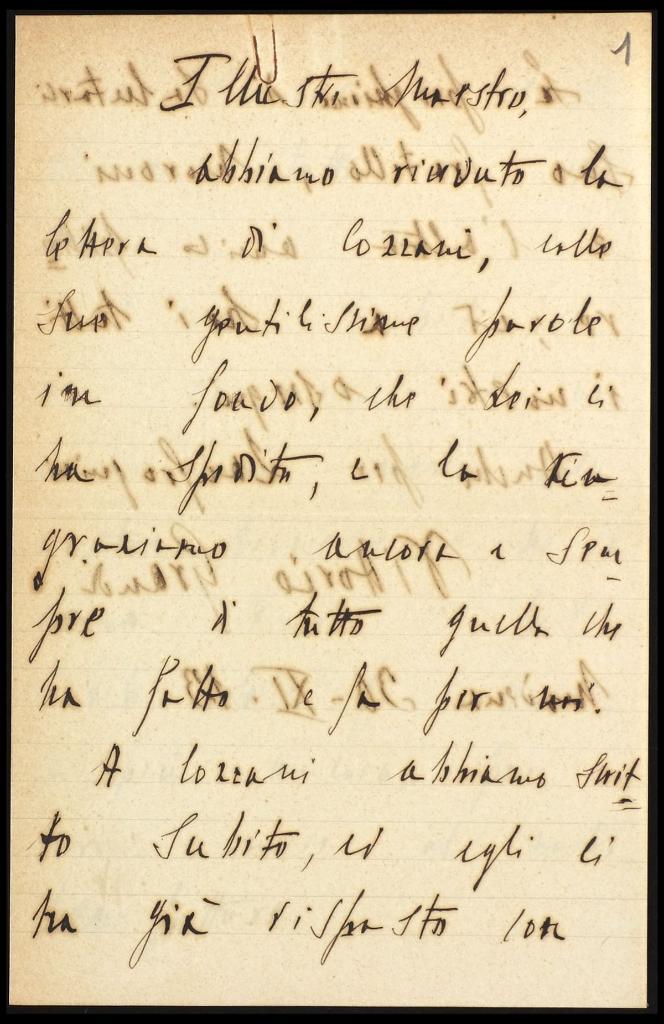 1
Illustre Maestro,
abbiamo ricevuto la
lettera di Cozzani, colle
Sue gentilissime parole
in fondo, che Lei ci
ha spedito, e la rin=
graziamo ancora e sem
pre di tutto quello che
ha fatto e fa per noi.
A Cozzani abbiamo scrit=
to subito, ed egli ci
ha già risposto con